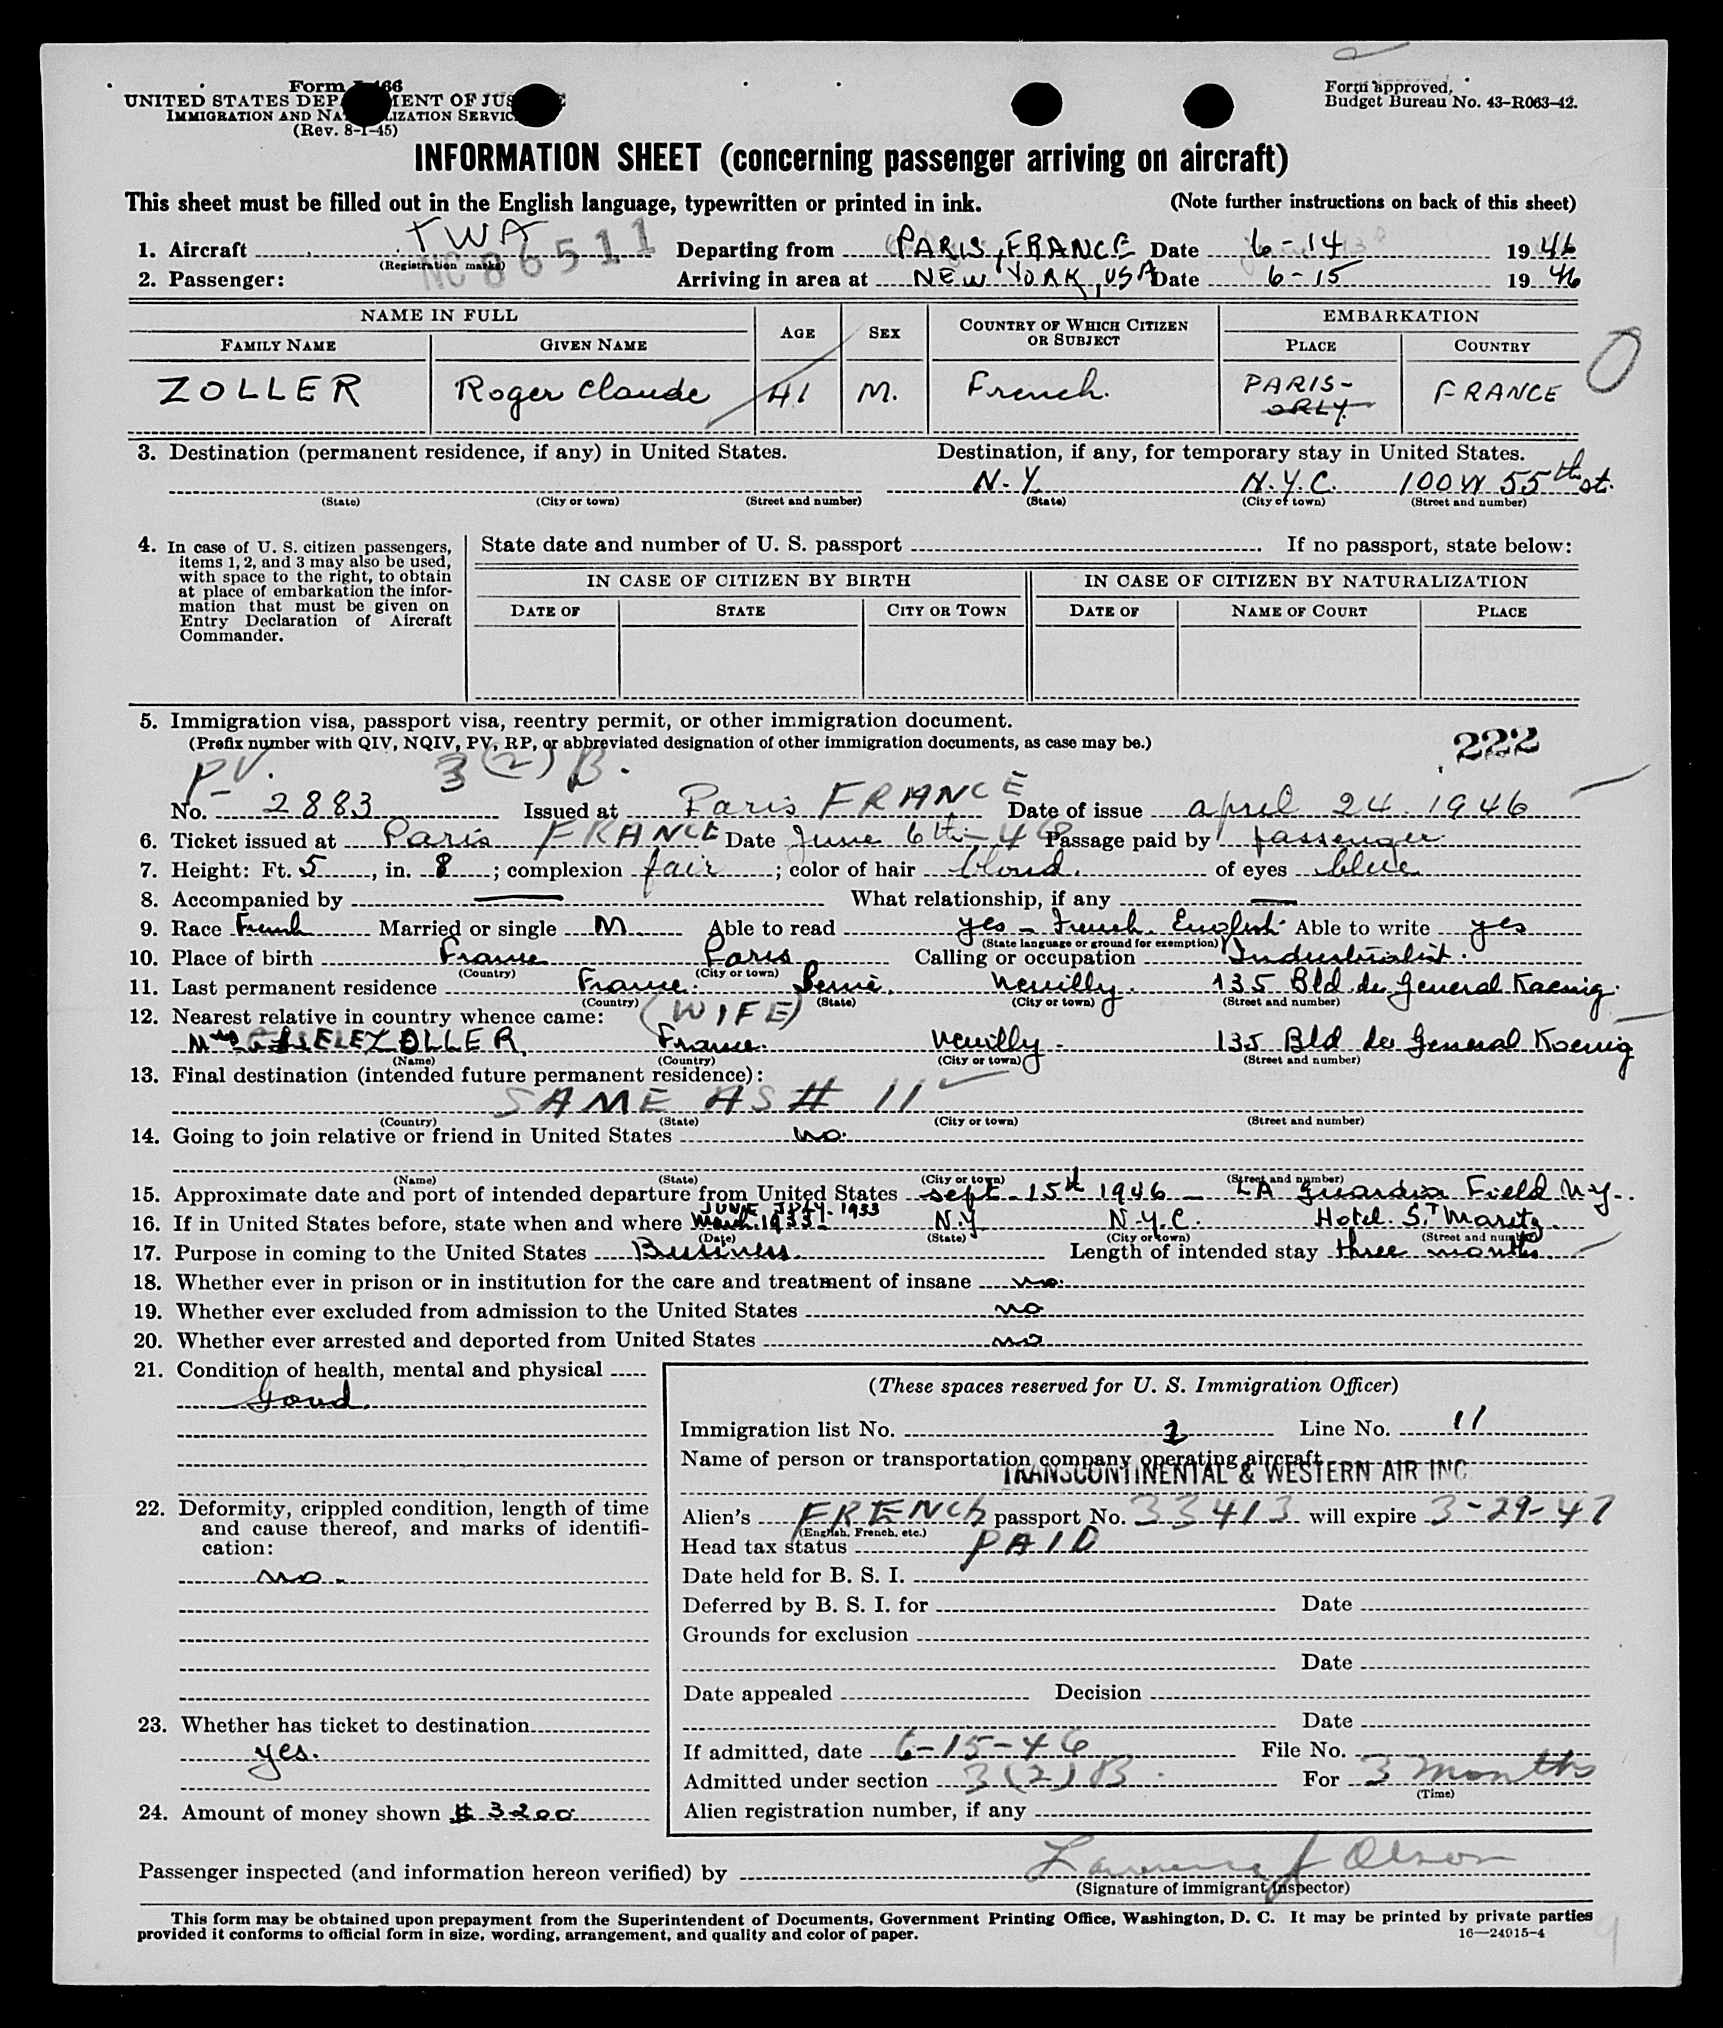 Form I-466
UNITED STATES DEPARTMENT OF JUSTICE
IMMIGRATION AND NATURALIZATION SERVICE
(Rev. 8-1-45)
Form approved.
Budget Bureau No. 43-R063-42.
INFORMATION SHEET (concerning passenger arriving on aircraft)
This sheet must be filled out in the English language, typewritten or printed in ink. (Note further instructions on back of this sheet)
1. Aircraft TWA NC 86511 Departing from PARIS, FRANCE Date 6-14 1946
(Registration marks)
2. Passenger: Arriving in area at NEW YORK, USA Date 6-15 1946
NAME IN FULL AGE SEX COUNTRY OF WHICH CITIZEN OR SUBJECT EMBARKATION
FAMILY NAME GIVEN NAME PLACE COUNTRY
ZOLLER Roger Claude 41 M. French. PARIS- ORLY. FRANCE
3. Destination (permanent residence, if any) in United States. Destination, if any, for temporary stay in United States.
N.Y. N.Y.C. 100 W 55th st.
(State) (City or town) (Street and number) (State) (City of town) (Street and number)
4. In case of U. S. citizen passengers, items 1, 2, and 3 may also be used, with space to the right, to obtain at place of embarkation the information that must be given on Entry Declaration of Aircraft Commander.
State date and number of U. S. passport If no passport, state below:
IN CASE OF CITIZEN BY BIRTH IN CASE OF CITIZEN BY NATURALIZATION
DATE OF STATE CITY OR TOWN DATE OF NAME OF COURT PLACE
5. Immigration visa, passport visa, reentry permit, or other immigration document.
(Prefix number with QIV, NQIV, PV, RP, or abbreviated designation of other immigration documents, as case may be.)
222
PV. 3(2)B.
No. 2883 Issued at Paris FRANCE Date of issue april 24. 1946
6. Ticket issued at Paris FRANCE Date June 6th-46 Passage paid by passenger
7. Height: Ft. 5, in. 8; complexion fair; color of hair blond. of eyes blue
8. Accompanied by — What relationship, if any —
9. Race French Married or single M. Able to read yes - French. English. Able to write yes
(State language or ground for exemption)
10. Place of birth France Paris Calling or occupation Industrialist.
(Country) (City or town)
11. Last permanent residence France. Seine. Neuilly. 135 Bld du General Koenig.
(Country) (State) (City or town) (Street and number)
12. Nearest relative in country whence came: (WIFE)
ZOLLER, France. Neuilly - 135 Bld du General Koenig
(Name) (Country) (City or town) (Street and number)
13. Final destination (intended future permanent residence):
SAME AS # 11
(Country) (State) (City or town) (Street and number)
14. Going to join relative or friend in United States no.
(Name) (State) (City or town) (Street and number)
15. Approximate date and port of intended departure from United States sept - 15th 1946 - LA Guardia Field N.Y.
JUNE JULY. 1933
16. If in United States before, state when and where March.1933! N.Y N.Y.C. Hotel. St Moritz.
(Date) (State) (City or town) (Street and number)
17. Purpose in coming to the United States Business. Length of intended stay three months.
18. Whether ever in prison or in institution for the care and treatment of insane no.
19. Whether ever excluded from admission to the United States no
20. Whether ever arrested and deported from United States no
21. Condition of health, mental and physical
Good.
22. Deformity, crippled condition, length of time and cause thereof, and marks of identification:
no -
23. Whether has ticket to destination
yes.
24. Amount of money shown $ 3200
(These spaces reserved for U. S. Immigration Officer)
Immigration list No. 2 Line No. 11
Name of person or transportation company operating aircraft
TRANSCONTINENTAL & WESTERN AIR INC
Alien's FRENCH passport No. 33413 will expire 3-29-47
(English, French, etc.)
Head tax status PAID
Date held for B. S. I.
Deferred by B. S. I. for Date
Grounds for exclusion
Date
Date appealed Decision
Date
If admitted, date 6-15-46 File No.
Admitted under section 3(2)B. For 3 months
(Time)
Alien registration number, if any
Passenger inspected (and information hereon verified) by Lawrence J Olson
(Signature of immigrant inspector)
This form may be obtained upon prepayment from the Superintendent of Documents, Government Printing Office, Washington, D. C. It may be printed by private parties
provided it conforms to official form in size, wording, arrangement, and quality and color of paper. 16—24915-4